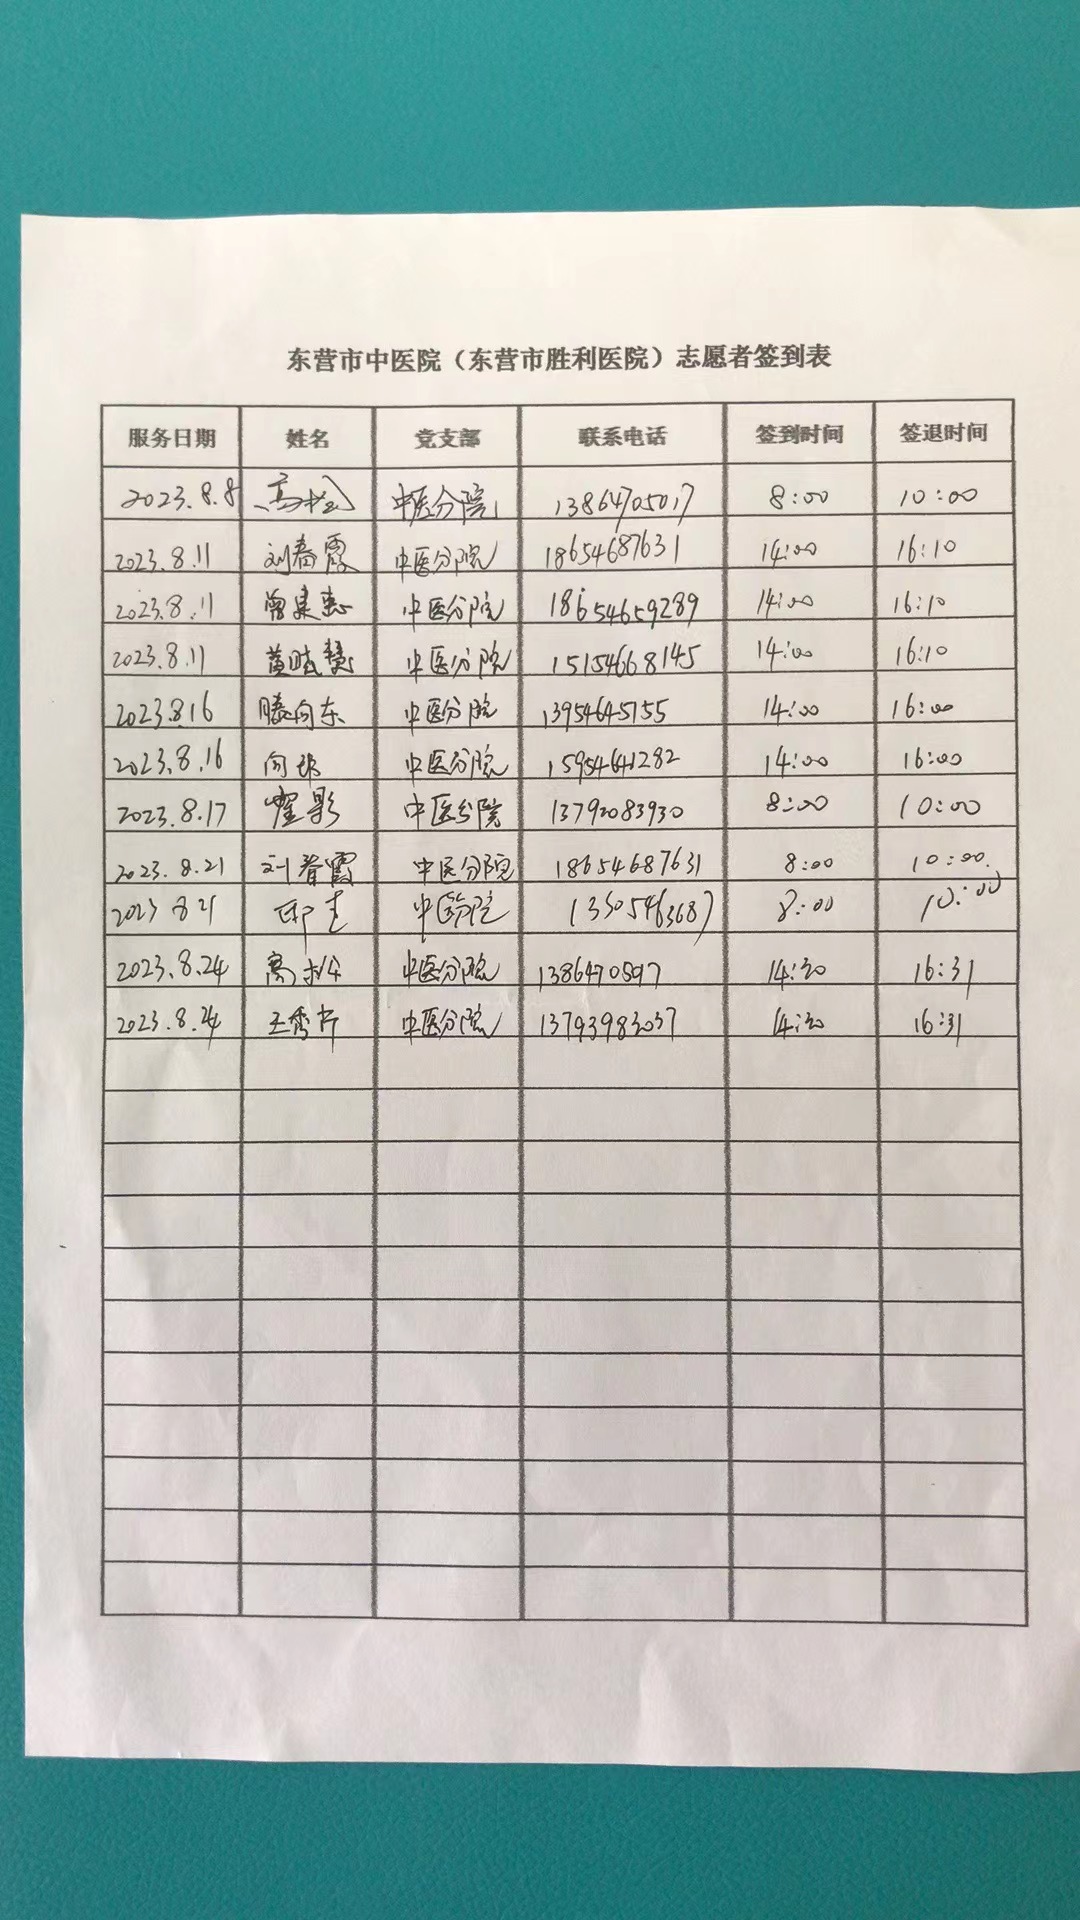 东营市中医院（东营市胜利医院）志愿者签到表
服务日期 姓名 党支部 联系电话 签到时间 签退时间
2023.8.8 高松 中医分院 13864705017 8:00 10:00
2023.8.11 刘春霞 中医分院 18654687631 14:00 16:10
2023.8.11 曾建惠 中医分院 18654659289 14:00 16:10
2023.8.11 黄 中医分院 15154668145 14:00 16:10
2023.8.16 滕向东 中医分院 13954645755 14:00 16:00
2023.8.16 向 中医分院 15954641282 14:00 16:00
2023.8.17 翟影 中医分院 13792083930 8:00 10:00
2023.8.21 刘春霞 中医分院 18654687631 8:00 10:00.
2023 8 21 中医分院 13305463687 8:00 10:00
2023.8.24 高松 中医分院 14:30 16:31
2023.8.24 王秀芹 中医分院 13793983037 14:30 16:31